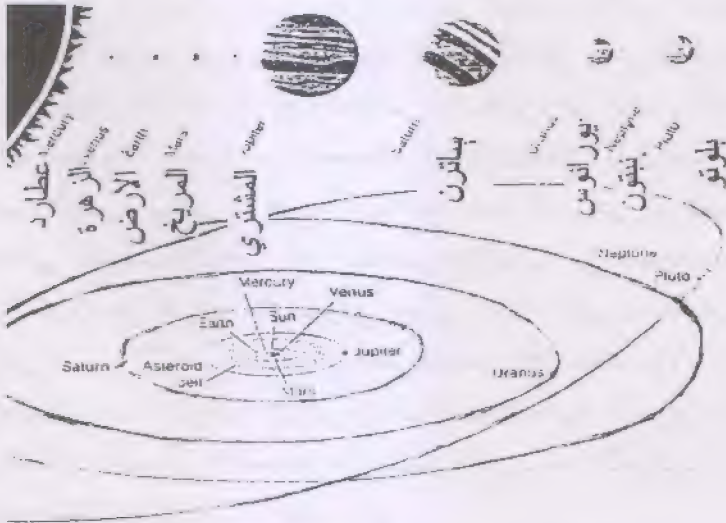 Mercury
Venus
Earth
Mars
Jupiter
Saturn
Uranus
Neptune
Pluto
عطارد
الزهرة
الارض
المريخ
المشتري
ساترن
يورانوس
نبتون
بلوتو
Neptune
Pluto
Mercury
Venus
Sun
Earth
Jupiter
Saturn
Asteroid
belt
Mars
Uranus